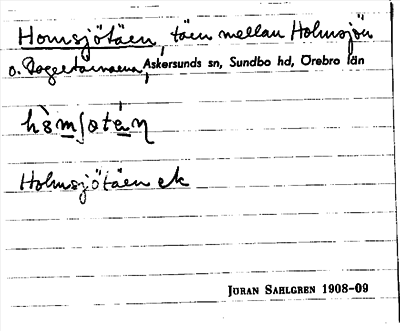 Homsjötäen, täen mellan Holmsjön
o. Doggetärnarna, Askersunds sn, Sundbo hd, Örebro län
Holmsjötäen ek
JÖRAN SAHLGREN 1908-09